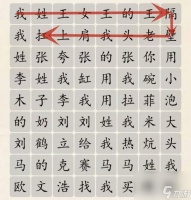 我姓王女王的王隔
我扛上肩我头老壁
姓张夸张的张你用
李姓我缸用我碗小
木子李我用拉菲大
的奶刘刘给我泡大
刘鹤立我热炕头
马的克赛马马姓我
欧文浩找我买